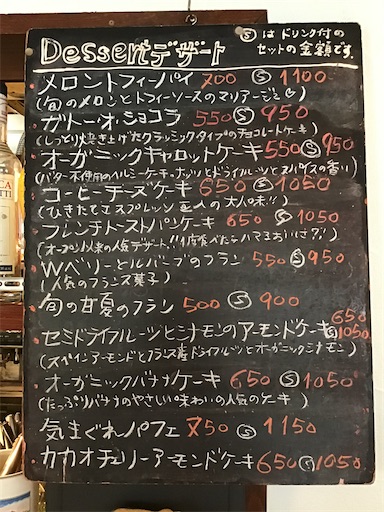 Dessert デザート
Ⓢはドリンク付の
セットの金額です。
メロントフィーパイ 700 Ⓢ 1100
(旬のメロンとトフィーソースのマリアージュ♡)
ガトー・オ・ショコラ 550 Ⓢ 950
(しっとり焼き上げたクラッシックタイプのチョコレートケーキ)
オーガニックキャロットケーキ 550 Ⓢ 950
(バター不使用のヘルシーケーキ・ナッツとドライフルーツとスパイスの香い)
コーヒーチーズケーキ 650 Ⓢ 1050
(ひきたてエスプレッソ 大人の大人味!!)
フレンチトーストパンケーキ 650 Ⓢ 1050
(オープン以来の人気デザート!!1度食べたらハマるおいしさ!!)
Wベリーとルバーブのフラン 550 Ⓢ 950
(人気のフランス菓子)
旬の甘夏のフラン 500 Ⓢ 900
セミドライフルーツとシナモンのアーモンドケーキ 650 Ⓢ 1050
(スペインアーモンドとフランス産ドライフルーツとオーガニックシナモン)
オーガニックバナナケーキ 650 Ⓢ 1050
(たっぷりバナナのやさしい味わいの人気のケーキ)
気まぐれパフェ 750 Ⓢ 1150
カカオチェリーアーモンドケーキ 650 Ⓢ 1050